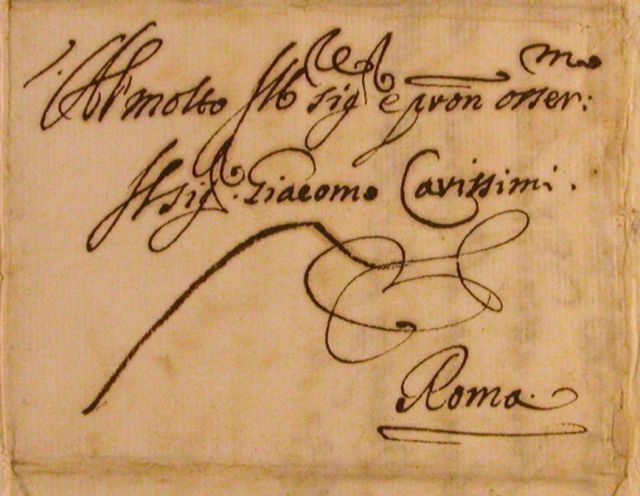 Al molto Ill.re sig.r e pron osser:mo
Il sig.r Giacomo Carissimi.
Roma